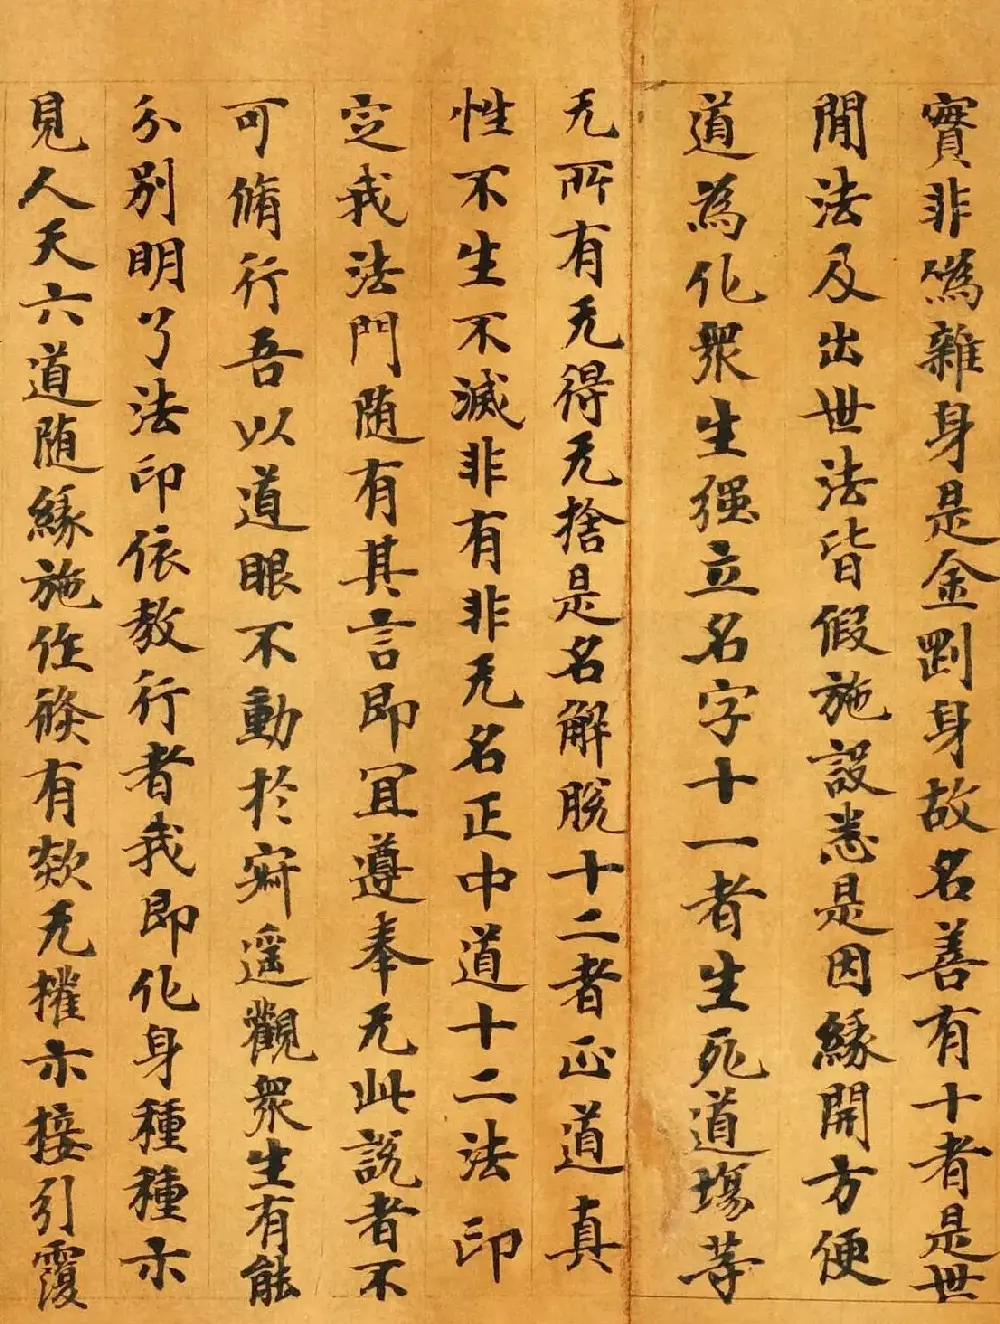 實非偽雜身是金剛身故名善有十者是世
間法及出世法皆假施設悉是因緣開方便
道為化眾生強立名字十一者生死道場等
无所有无得无捨是名解脫十二者正道真
性不生不滅非有非无名正中道十二法印
定我法門隨有其言即宜遵奉无此說者不
可脩行吾以道眼不動於寂遥觀眾生有能
分別明了法印依教行者我即化身種種示
見人天六道随緣施作倏有欻无權示接引覆